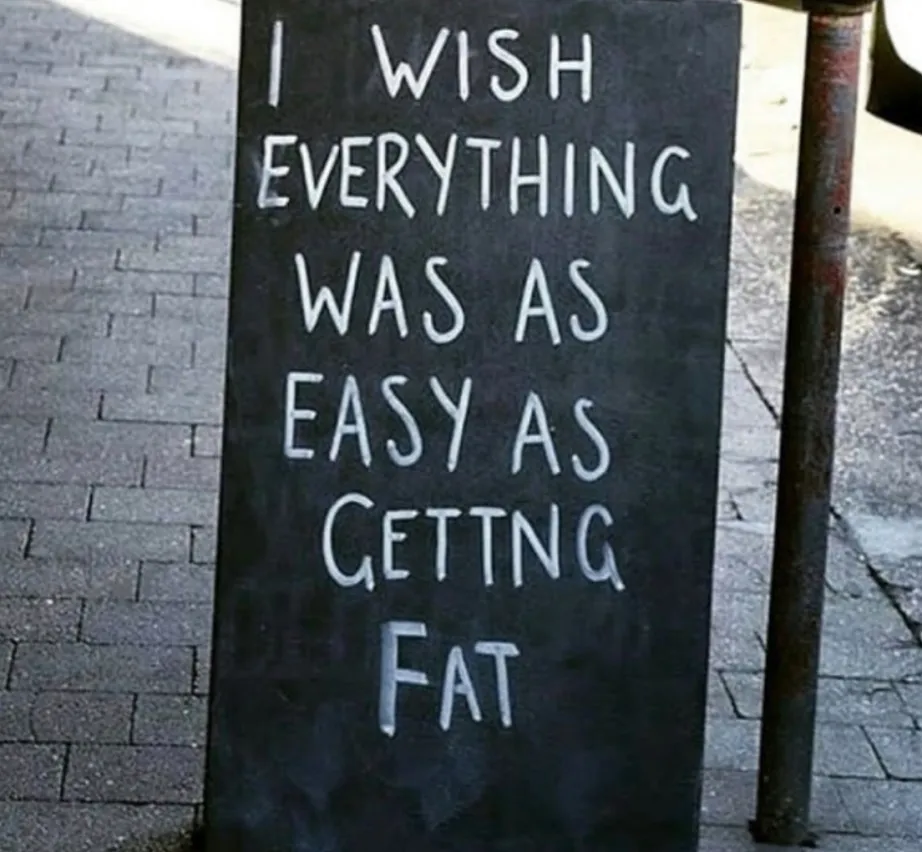 I WISH
EVERYTHING
WAS AS
EASY AS
GETTNG
FAT